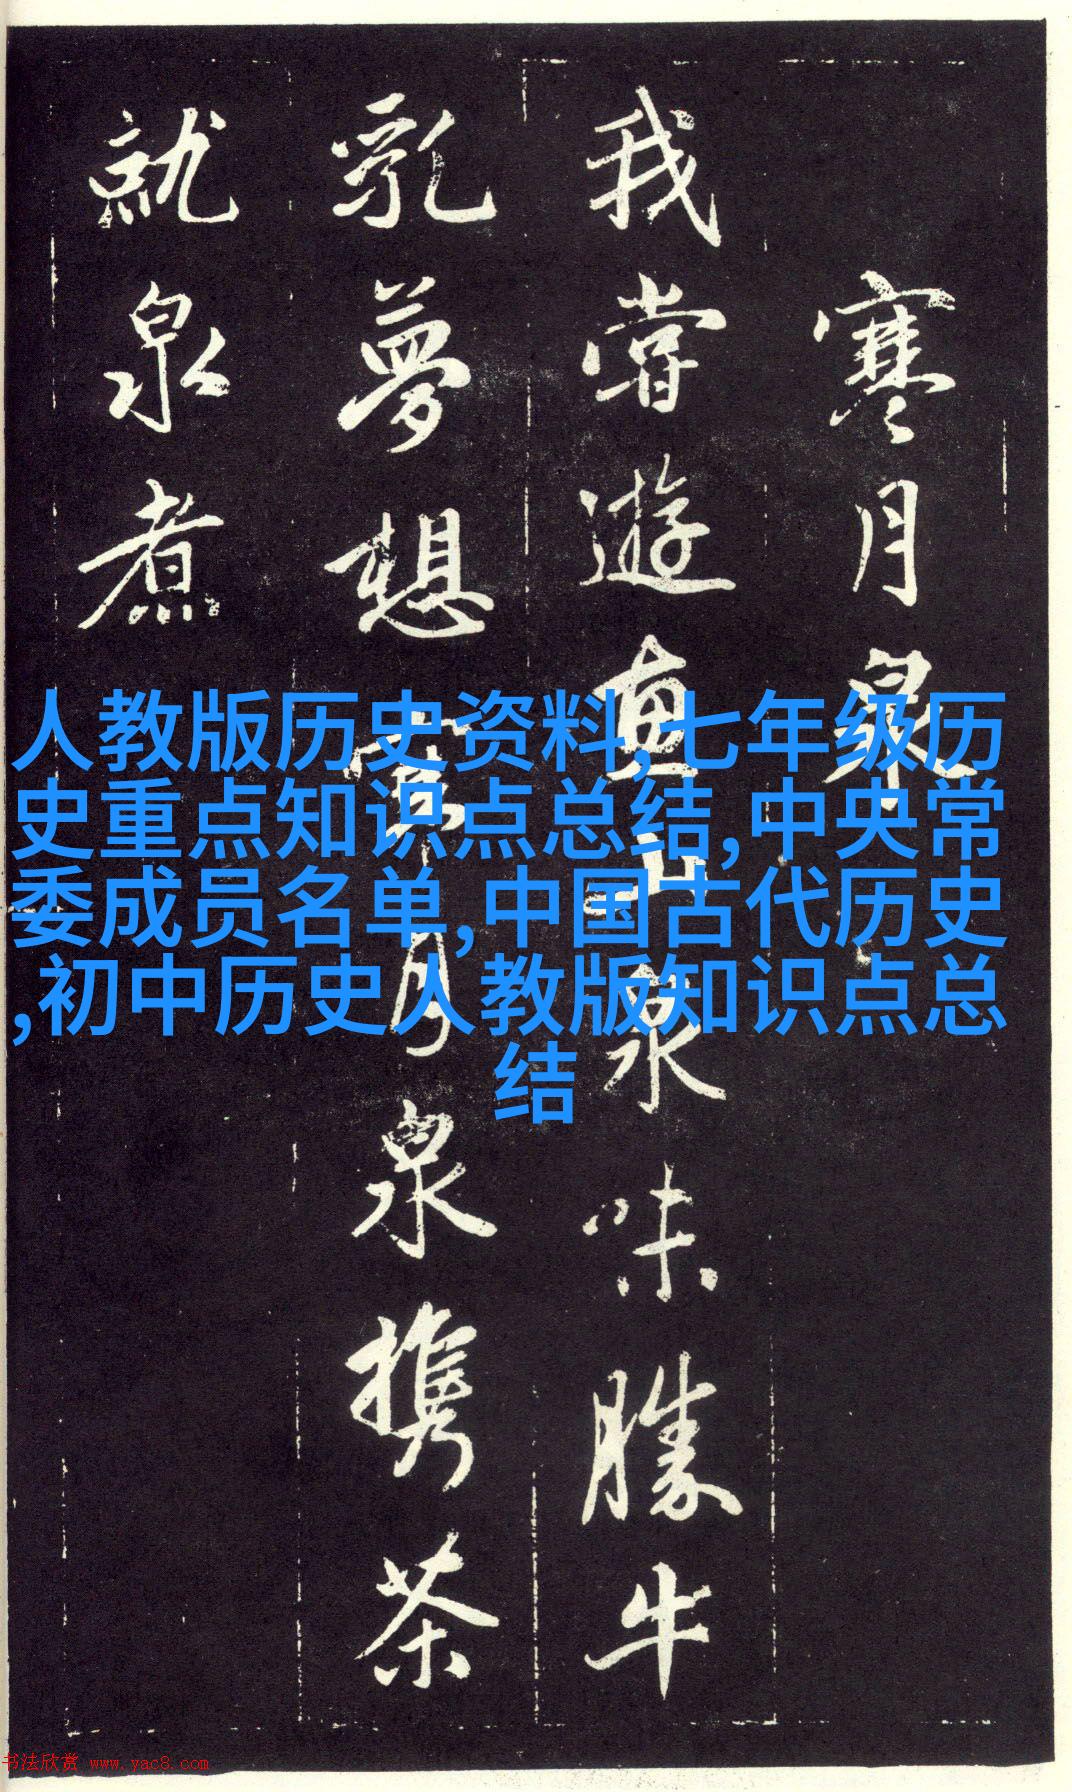 寒月泉
我嘗遊惠山泉味勝牛
乳夢想月泉攜茶
就泉煮
人教版历史资料,七年级历
史重点知识点总结,中央常
委成员名单,中国古代历史
,初中历史人教版知识点总
结
书法欣赏 www.yac8.com